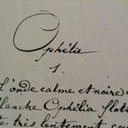 Ophélia
1.
l'onde calme et noire
blanche Ophélia flotte
te très lentement, cou